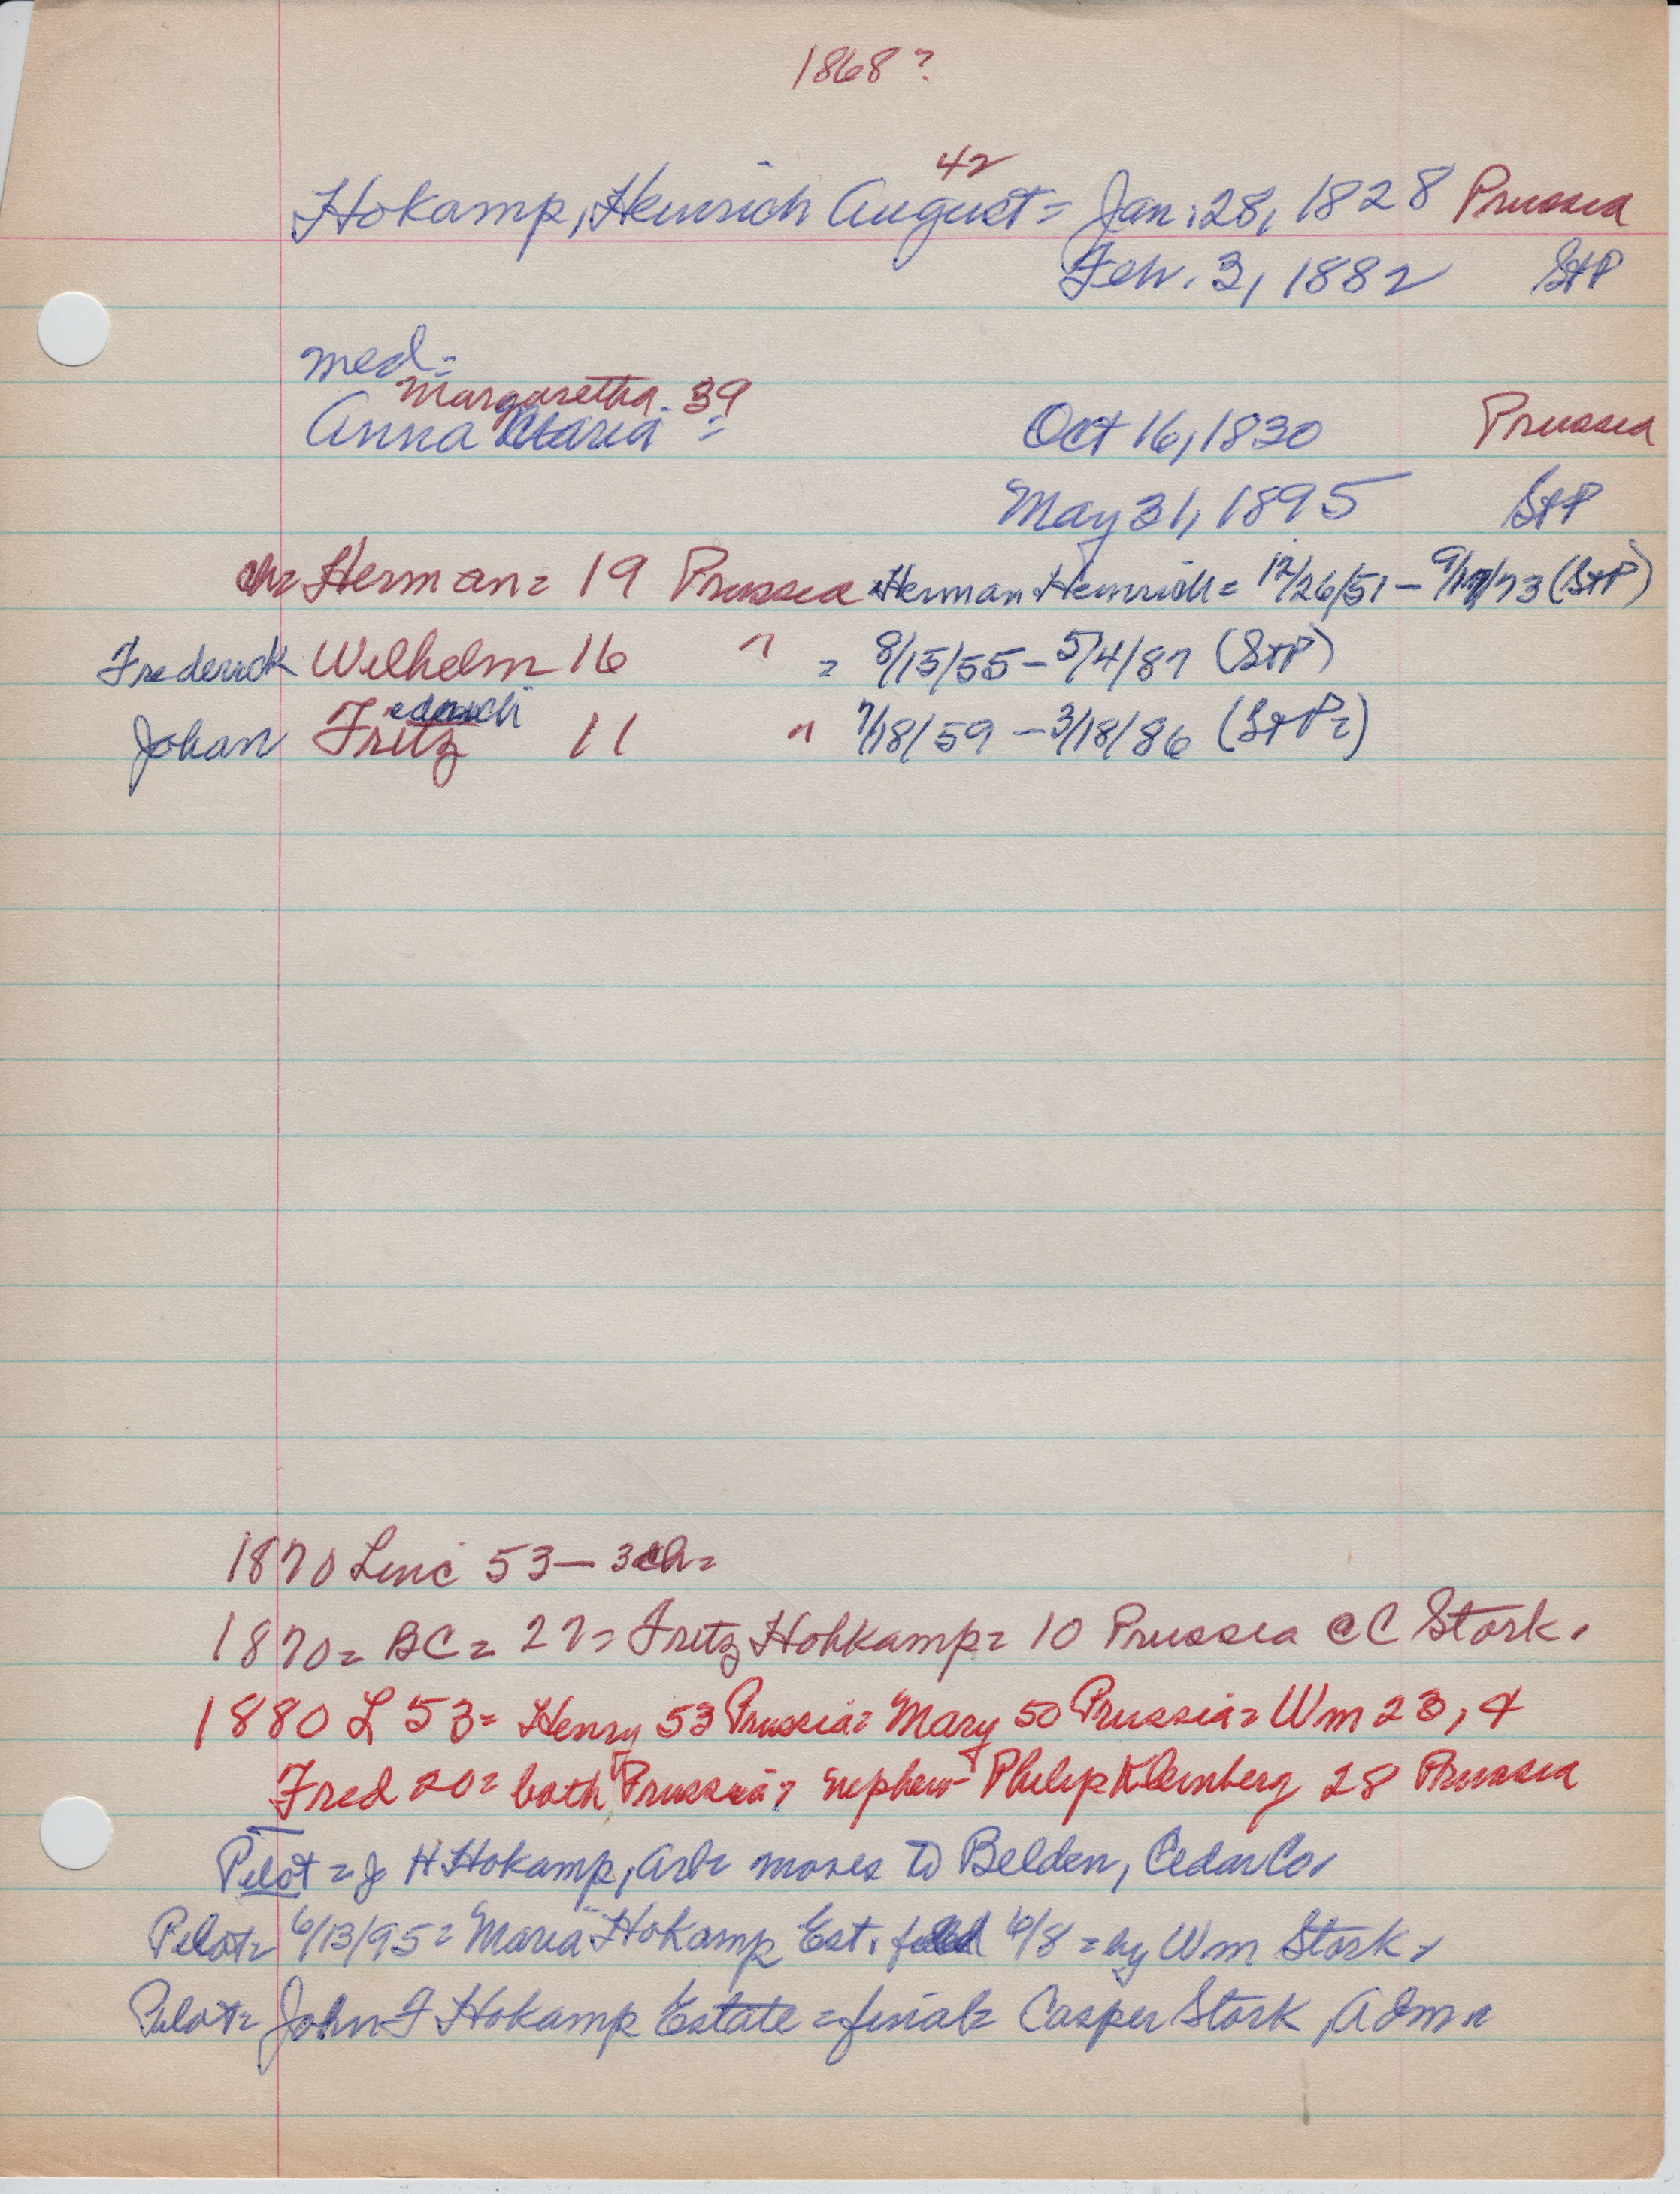 1868?
42
Hokamp, Heinrich August = Jan. 28, 1828 Prussia
Feb. 3, 1882 StP
med =
Margaretha 39
Anna Maria = Oct 16, 1830 Prussia
May 31, 1895 StP
ch= Herman = 19 Prussia = Herman Heinrich = 12/26/51 - 9/17/73 (StP)
Frederick Wilhelm 16 " = 8/15/55 - 5/4/87 (StP)
Johan Fritz 11 " 7/18/59 - 3/18/86 (StP=)
1870 Linc 53 - 3ch=
1870 = BC = 27 = Fritz Hohkamp = 10 Prussia @ C Stork.
1880 L 53 = Henry 53 Prussia = Mary 50 Prussia = Wm 23, &
Fred 20 = both Prussia, nephew - Philip Kleinberg 28 Prussia
Pilot = J H Hokamp, Arb= moves to Belden, Cedar Co.
Pilot = 6/13/95 = Maria Hokamp Est. filed 6/8 = by Wm Stork.
Pilot = John F Hokamp Estate = final = Casper Stork, Adm =